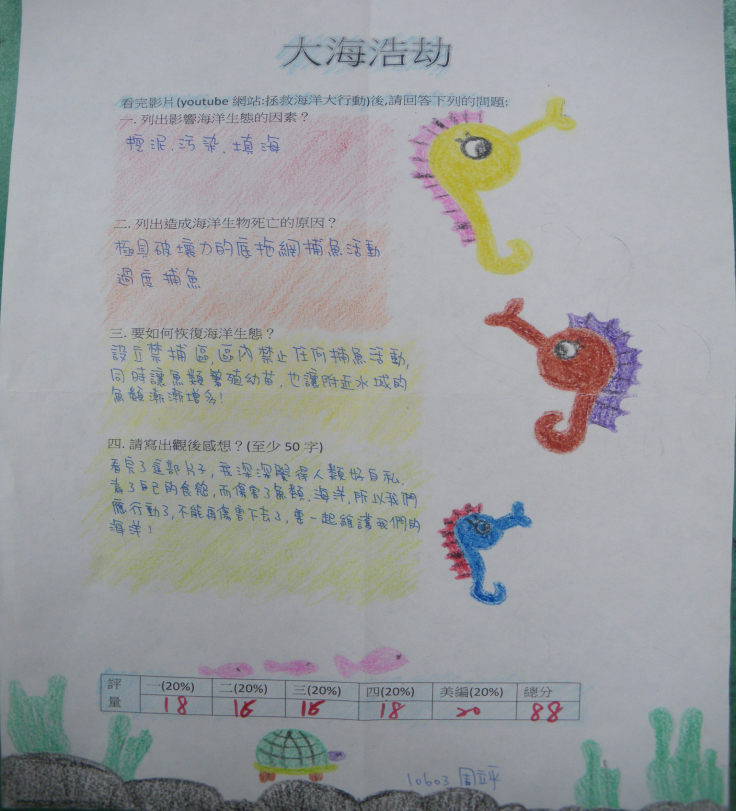 大海浩劫
看完影片(youtube 網站:拯救海洋大行動)後,請回答下列的問題:
一. 列出影響海洋生態的因素？
挖泥、污染、填海
二. 列出造成海洋生物死亡的原因？
極具破壞力的底拖網捕魚活動
過度捕魚
三. 要如何恢復海洋生態？
設立禁捕區,區內禁止任何捕魚活動,
同時讓魚類繁殖幼苗,也讓附近水域的
魚類漸漸增多!
四. 請寫出觀後感想？(至少 50 字)
看完了這部片子,我深深覺得人類好自私.
為了自己的食慾,而傷害了魚類.海洋,所以我們
應行動了,不能再傷害下去了,要一起維護我們的
海洋!
評量 一(20%) 二(20%) 三(20%) 四(20%) 美編(20%) 總分
18 18 20 88
10603